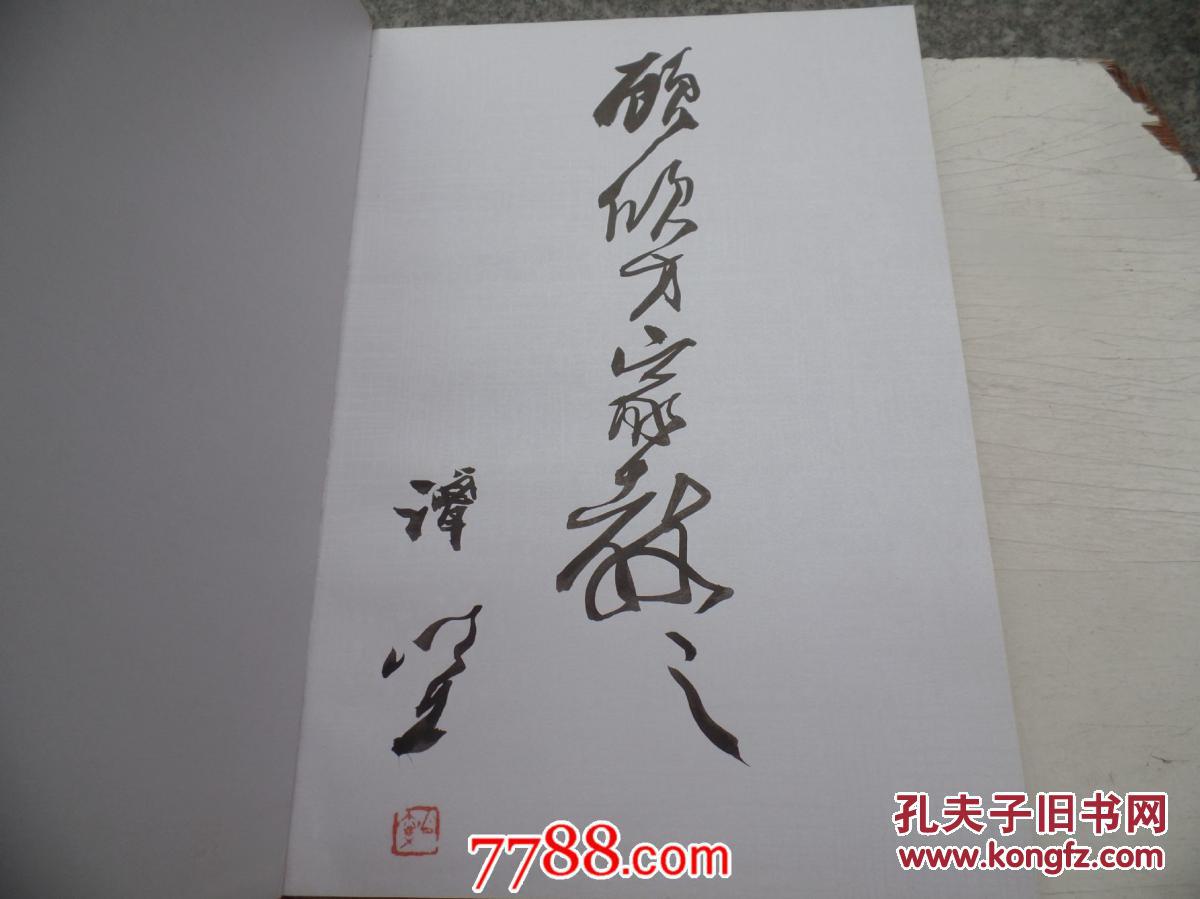 顾欣方家教之
谭
7788.com
孔夫子旧书网
www.kongfz.com